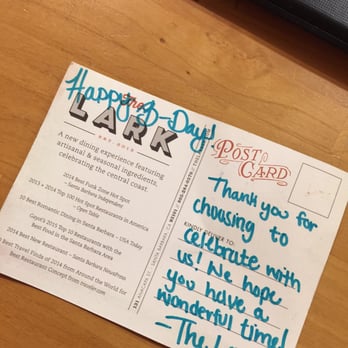 Happy B-Day!
The
LARK
EST. 2013
A new dining experience featuring
artisanal & seasonal ingredients,
celebrating the central coast.
2014 Best Funk Zone Hot Spot
- Santa Barbara Independent
2013 + 2014 Top 100 Hot Spot Restaurants in America
- Open Table
10 Best Romantic Dining in Santa Barbara - USA Today
2013's Top 10 Restaurants with the
Best Food in the Santa Barbara Area
2014 Best New Restaurant - Santa Barbara NewsPress
Best Travel Finds of 2014 from Around the World for
Best Restaurant Concept from
131 ANACAPA ST. SANTA BARBARA, CA 93101
POST
CARD
KINDLY DELIVER TO:
Thank you for
choosing to
celebrate with
us! We hope
you have a
wonderful time!
-The